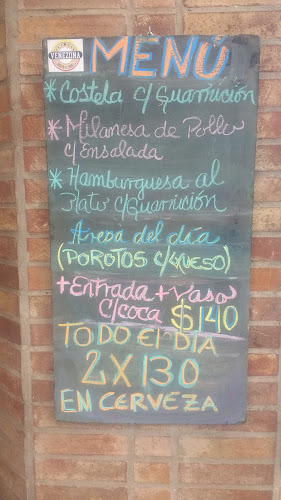 VENEZONA
MENÚ
* Costela c/ Guarnición
* Milanesa de Pollo
c/ Ensalada
* Hamburguesa al
Plato c/ Guarnición
Arepa del día
(POROTOS C/ QUESO)
+ Entrada + Vaso
c/ coca $140
TODO El DIA
2 X 130
EN CERVEZA